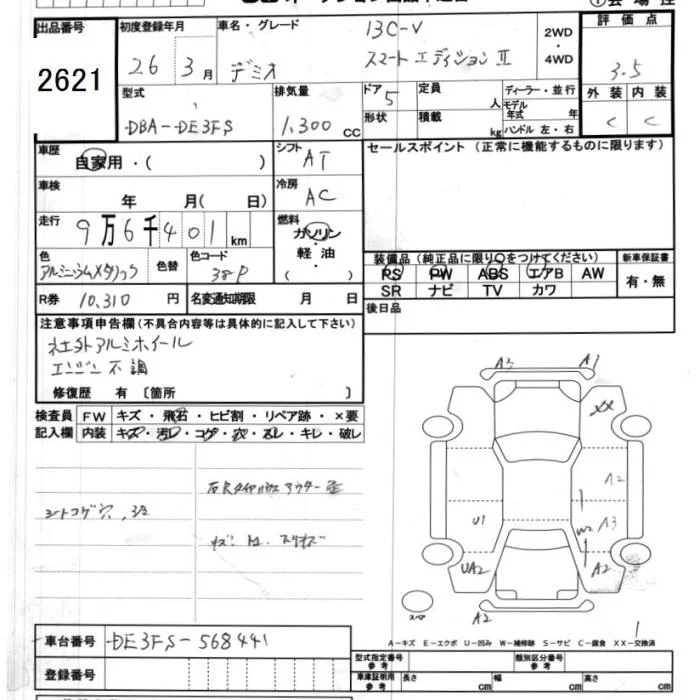 出品番号 2621
初度登録年月 26年 3月
車名・グレード デミオ 13C-V スマートエディションⅡ
2WD・4WD
評価点 3.5
外装 内装
C C
型式 DBA-DE3FS
排気量 1,300 CC
ドア 5
形状
定員 人
積載 kg
ディーラー・並行
モデル年式 年
ハンドル 左・右
車歴 自家用・( )
シフト AT
セールスポイント(正常に機能するものに限ります)
車検 年 月( 日)
冷房 AC
走行 9万6千401km
燃料 ガソリン・軽油・( )
色 アルミニウムメタリック
色替
色コード 38P
装備品(純正品に限り○をつけてください)
新車保証書
PS PW ABS エアB AW
有・無
SR ナビ TV カワ
R券 10,310円
名変通知期限 月 日
後日品
注意事項申告欄(不具合内容等は具体的に記入して下さい)
社外アルミホイール
エンジン不調
修復歴 有〔箇所 〕
検査員 FW キズ・飛石・ヒビ割・リペア跡・×要
記入欄 内装 キズ・汚レ・コゲ・穴・スレ・キレ・破レ
シートコゲ穴
A3 A1
XX
A2
U1
A3
W2
UA2
A2
A2
スペア
1
A-キズ E-エクボ U-凹み W-補修跡 S-サビ C-腐食 XX-交換済
車台番号 DE3FS-568441
登録番号
型式指定番号 参考
類別区分番号 参考
車庫証明用 参考 長さ cm 幅 cm 高さ cm